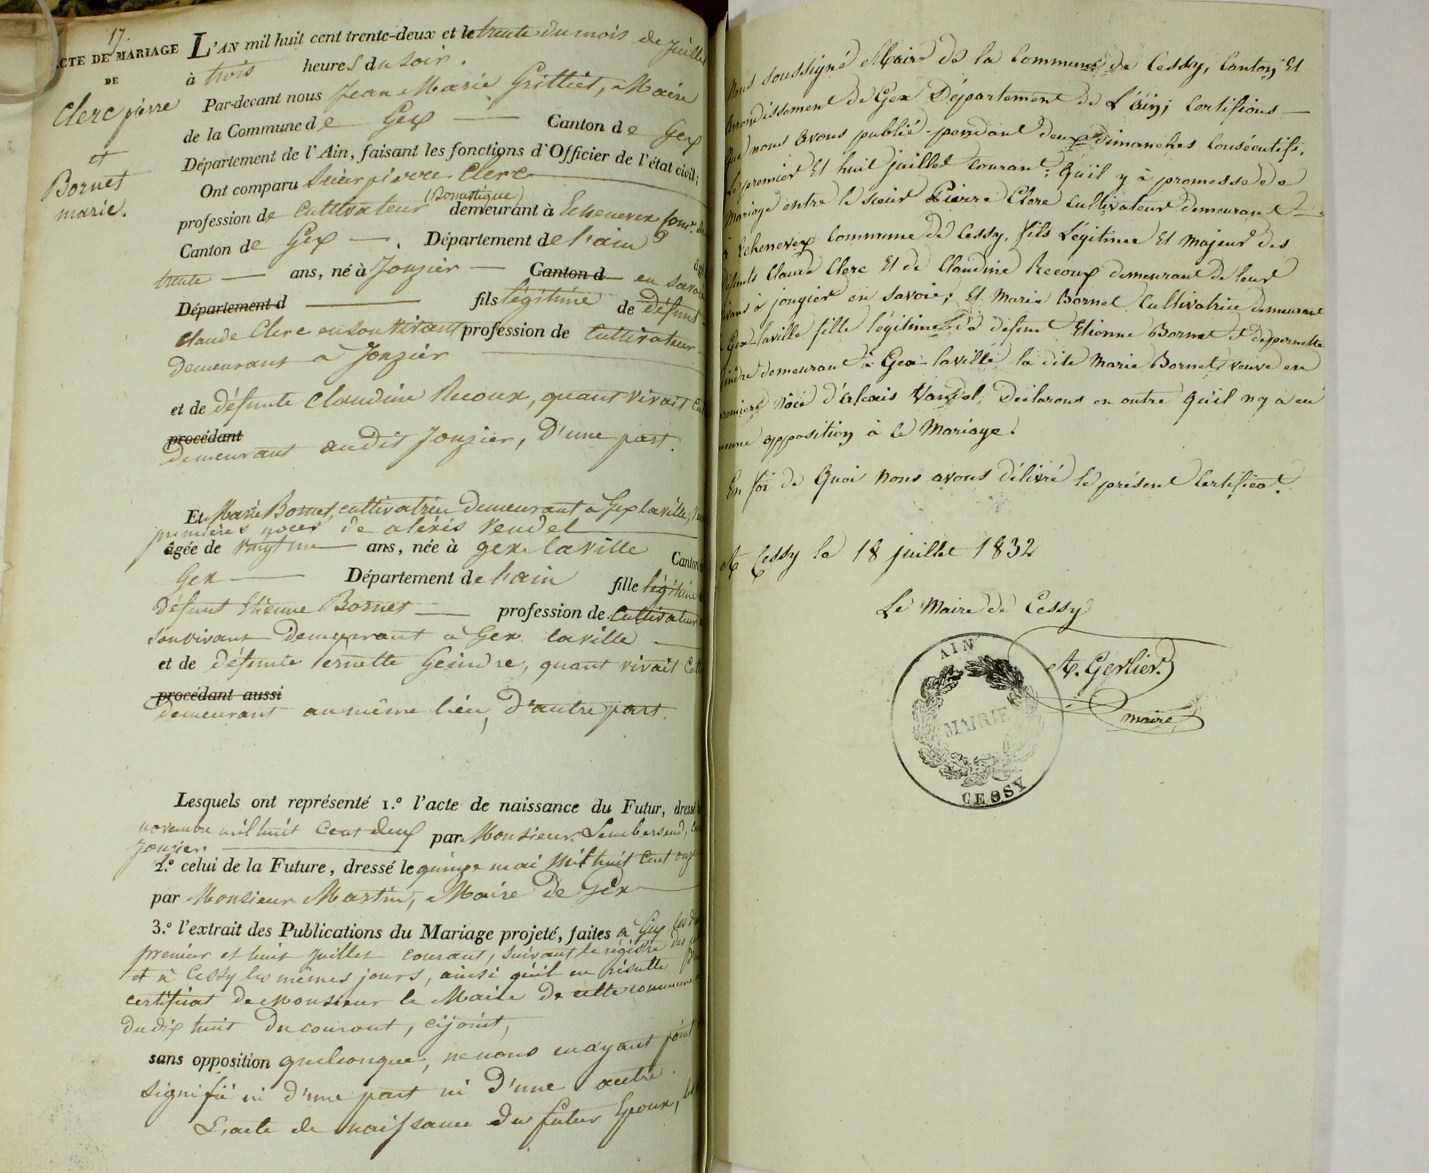 17.
ACTE DE MARIAGE
DE
Clerc pierre
et
Bornet
marie.
L'AN mil huit cent trente-deux et le trente du mois de juillet
à trois heures du soir.
Par-devant nous Jean Marie Grilliet, Maire
de la Commune de Gex Canton de Gex
Département de l'Ain, faisant les fonctions d'Officier de l'état civil;
Ont comparu Sieur pierre Clerc
(Domestique)
profession de Cultivateur demeurant à Echenevex
Canton de Gex, Département de l'ain
trente ans, né à Jonzier Canton d en Savoie
Département d fils légitime de Défunt
Claude Clerc en son vivant profession de Cultivateur
Demeurant à Jonzier
et de défunte Claudine Recoux, quant vivait
procédant
Demeurant audit Jonzier, D'une part.
Et Marie Bornet, cultivatrice demeurant à Gex laville,
premières noces de alexis Vendel
âgée de Vingt un ans, née à gex la ville Canton
Gex Département de l'ain fille légitime
Défunt Etienne Bornet profession de Cultivateur
Sonvivant Demeurant à Gex laville
et de défunte Pernette Geindre, quant vivait
procédant aussi
Demeurant au même lieu, D'autre part.
Lesquels ont représenté 1.° l'acte de naissance du Futur, dressé
novembre mil huit cent deux par Monsieur
Jonzier.
2.° celui de la Future, dressé le quinze mai mil huit cent onze
par Monsieur Martin, Maire de Gex
3.° l'extrait des Publications du Mariage projeté, faites à Gex les
premier et huit juillet courant, suivant le régistre
et à Cessy les mêmes jours, ainsi qu'il en résulte
certificat de Monsieur le Maire de cette commune
du dix huit du courant, cijoint,
sans opposition quelconque, ne nous en ayant point
signifié ni d'une part ni d'une autre.
L'acte de naissance du futur Epoux,
Nous soussigné Maire de la Commune de Cessy, Canton Et
arrondissement de Gex Département de L'ain; Certifions
que nous avons publié pendant deux dimanches consécutifs,
Le premier Et huit juillet courant, qu'il y a promesse de
mariage entre le sieur Pierre Clerc Cultivateur demeurant
à Echenevex Commune de Cessy, fils Légitime Et majeur des
défunts Claude Clerc Et de Claudine Recoux demeurant de leur
vivant à jongier en Savoie; Et Marie Bornet Cultivatrice demeurant
à Gex-laville fille légitime de défunt Etienne Bornet & de pernette
Geindre demeurant à Gex-laville la dite Marie Bornet veuve en
première Noce d'alexis Vandel; Déclarons en outre qu'il n'y a eu
aucune opposition à ce Mariage.
En foi de Quoi Nous avons délivré le présent Certificat.
A Cessy le 18 juillet 1832
Le Maire de Cessy
A. Gerlier.
maire
AIN
MAIRIE
CESSY